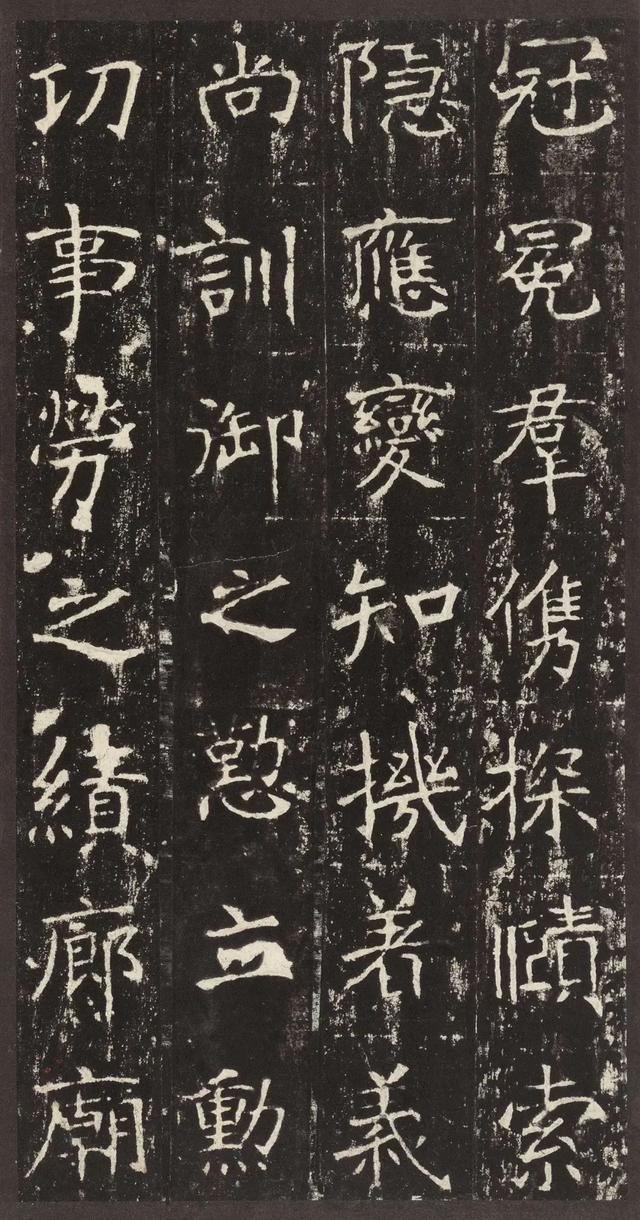 冠冕羣儁探賾索
隱應變知機著義
尚訓御之懃立勳
功事勞之績廊廟